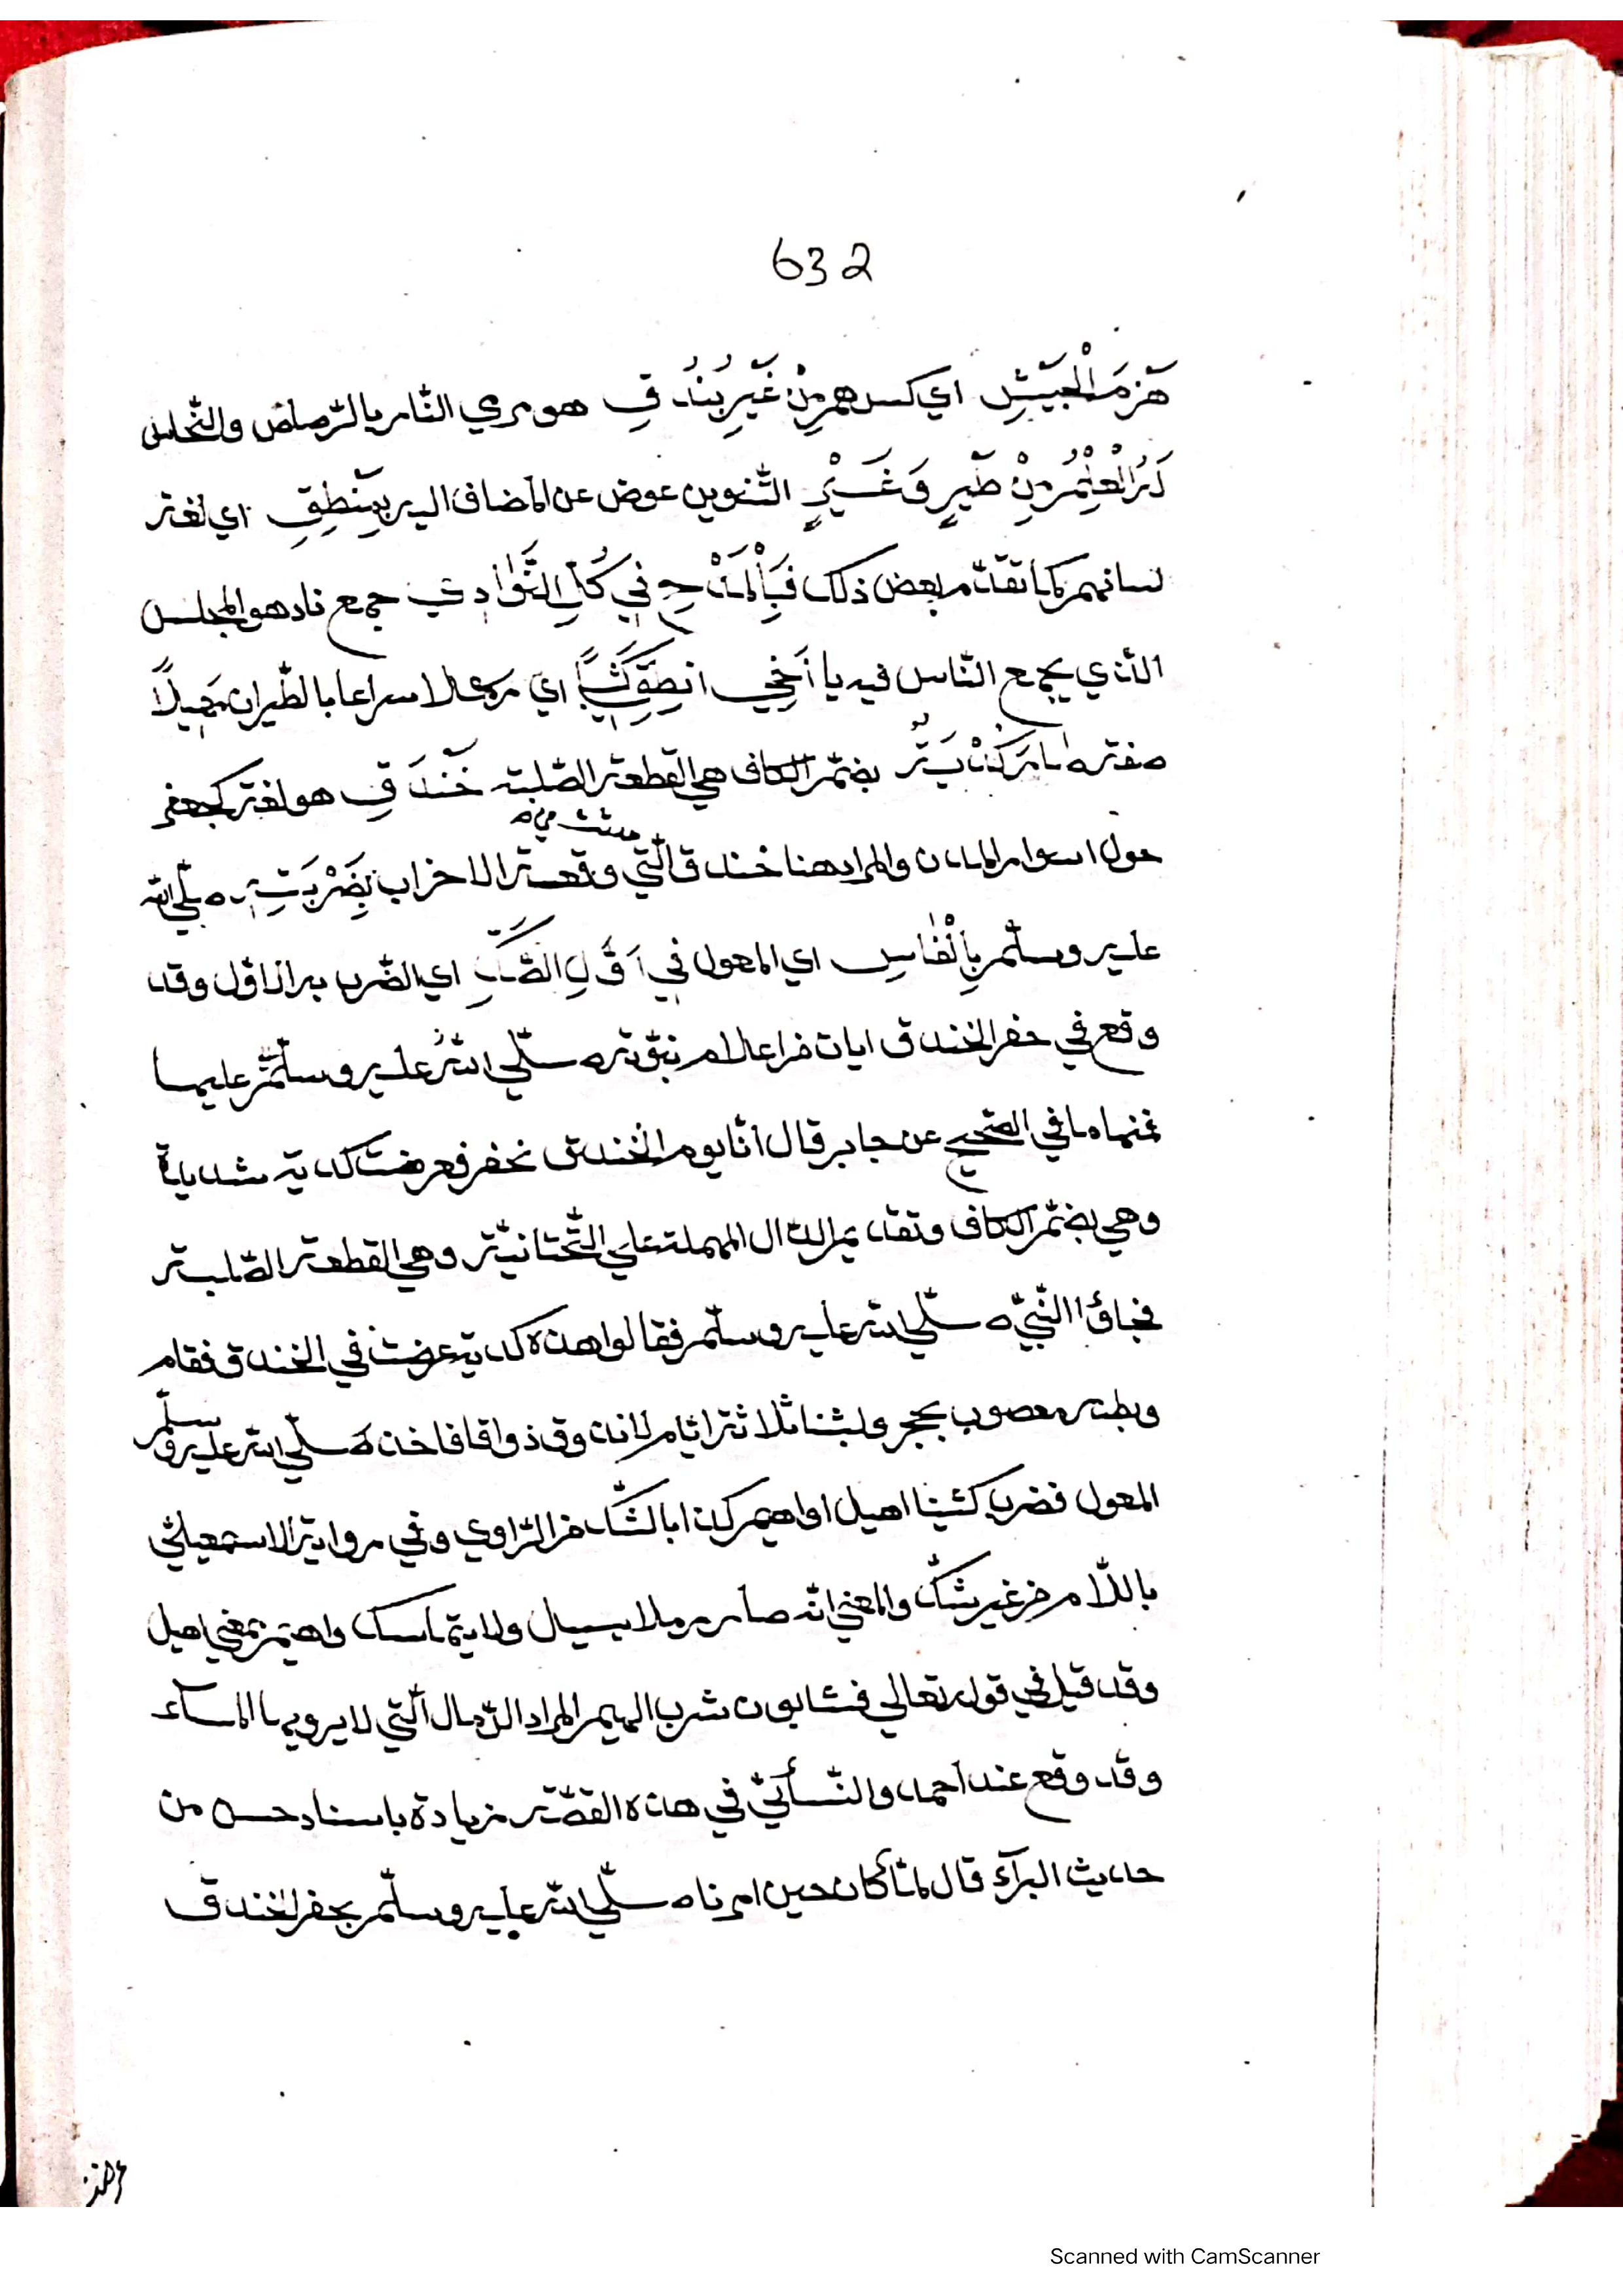 632
هَزْمَ الْجَيْشِ اي كسرهم مِنْ غَيْرِ بُنْدُقِ هو مرمي النار بالرّصاص والنّحاس
العِلْمُ مِنْ طَيْرٍ وَغَيْرٍ التّنوين عوض عن المضاف اليه بِمَنْطِقِ اي لغة
لسانهم كما تقدّم بعض ذلك فَبِالْمَدْحِ فِي كُلِّ النَّوَادِي جمع ناد هو المجلس
الّذي يجمع النّاس فيه يا أَخِي انطق كَثِيبًا اي رملا سراعا بالطّيران مَهِيلًا
صفته صَارَ كُدْيَةُ بضمّ الكاف هي القطعة الصّلبة خَنْدَقِ هو لغة كجعفر
حول اسوار المدن والمراد هنا خندق الّتي وقعة الاحزاب بِضَرْبَتِهِ صلّي الله
عليه وسلّم بِالْفَاسِ اي المعول في أَوَّلِ الضَّرْبِ اي الضّرب به الاوّل وقد
وقع في حفر الخندق ايات من اعلام نبوّته صلّي الله عليه وسلّم عليها
فمنها ما في الصّحيح عن جابر قال انّا يوم الخندق نحفر فعرضت كدية شديدة
وهي بضمّ الكاف وتقديم الدّال المهملة علي التّحتانيّة وهي القطعة الصّلبة
فجاؤا النّبيّ صلّي الله عليه وسلّم فقالوا هذه كدية عرضت في الخندق فقام
وبطنه معصوب بحجر ولبثنا ثلاثة ايّام لا نذوق ذواقا فاخذ صلّي الله عليه وسلّم
المعول فضرب كثيبا اهيل او اهيم كذا بالشّك من الرّاوي وفي رواية الاسمعيلي
باللّام من غير شكّ والمعني انّه صار رملا يسيل ولا يتماسك واهيم بمعني اهيل
وقد قيل في قوله تعالي فشاربون شرب الهيم المراد الرّمال الّتي لا يرويها الماء
وقد وقع عند احمد والنّسأئيّ في هذه القصّة زيادة باسناد حسن من
حديث البرآء قال لمّا كان حين امرنا صلّي الله عليه وسلّم بحفر الخندق
Scanned with CamScanner